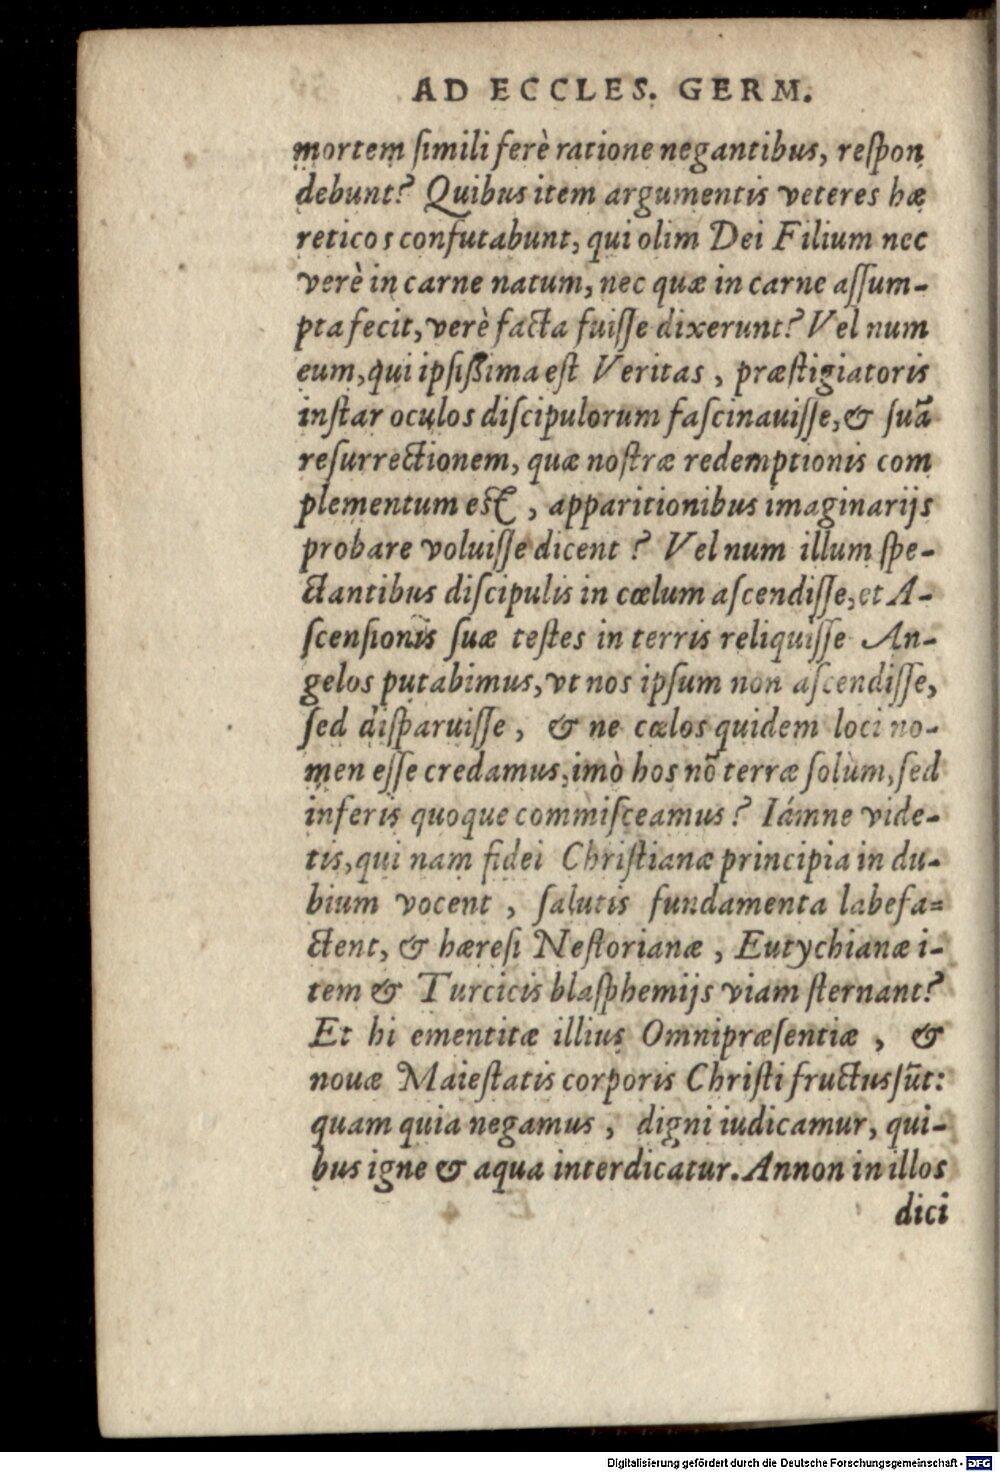 AD ECCLES. GERM.
mortem ſimili ferè ratione negantibus, reſpon
debunt? Quibus item argumentis veteres hæ
reticos confutabunt, qui olim Dei Filium nec
verè in carne natum, nec quæ in carne aſſum-
pta fecit, verè facta fuiſſe dixerunt? Vel num
eum, qui ipſiſsima eſt Veritas, præſtigiatoris
inſtar oculos diſcipulorum faſcinauiſſe, & ſuã
reſurrectionem, quæ noſtræ redemptionis com
plementum eſt, apparitionibus imaginarijs
probare voluiſſe dicent? Vel num illum ſpe-
ctantibus diſcipulis in cœlum aſcendiſſe, et A-
ſcenſionis ſuæ teſtes in terris reliquiſſe An-
gelos putabimus, vt nos ipſum non aſcendiſſe,
ſed diſparuiſſe, & ne cœlos quidem loci no-
men eſſe credamus, imò hos nõ terræ ſolùm, ſed
inferis quoque commiſceamus? Iámne vide-
tis, qui nam fidei Chriſtianæ principia in du-
bium vocent, ſalutis fundamenta labefa=
ctent, & hæreſi Neſtorianæ, Eutychianæ i-
tem & Turcicis blaſphemijs viam ſternant?
Et hi ementitæ illius Omnipræſentiæ, &
nouæ Maieſtatis corporis Chriſti fructus ſũt:
quam quia negamus, digni iudicamur, qui-
bus igne & aqua interdicatur. Annon in illos
dici
Digitalisierung gefördert durch die Deutsche Forschungsgemeinschaft - DFG